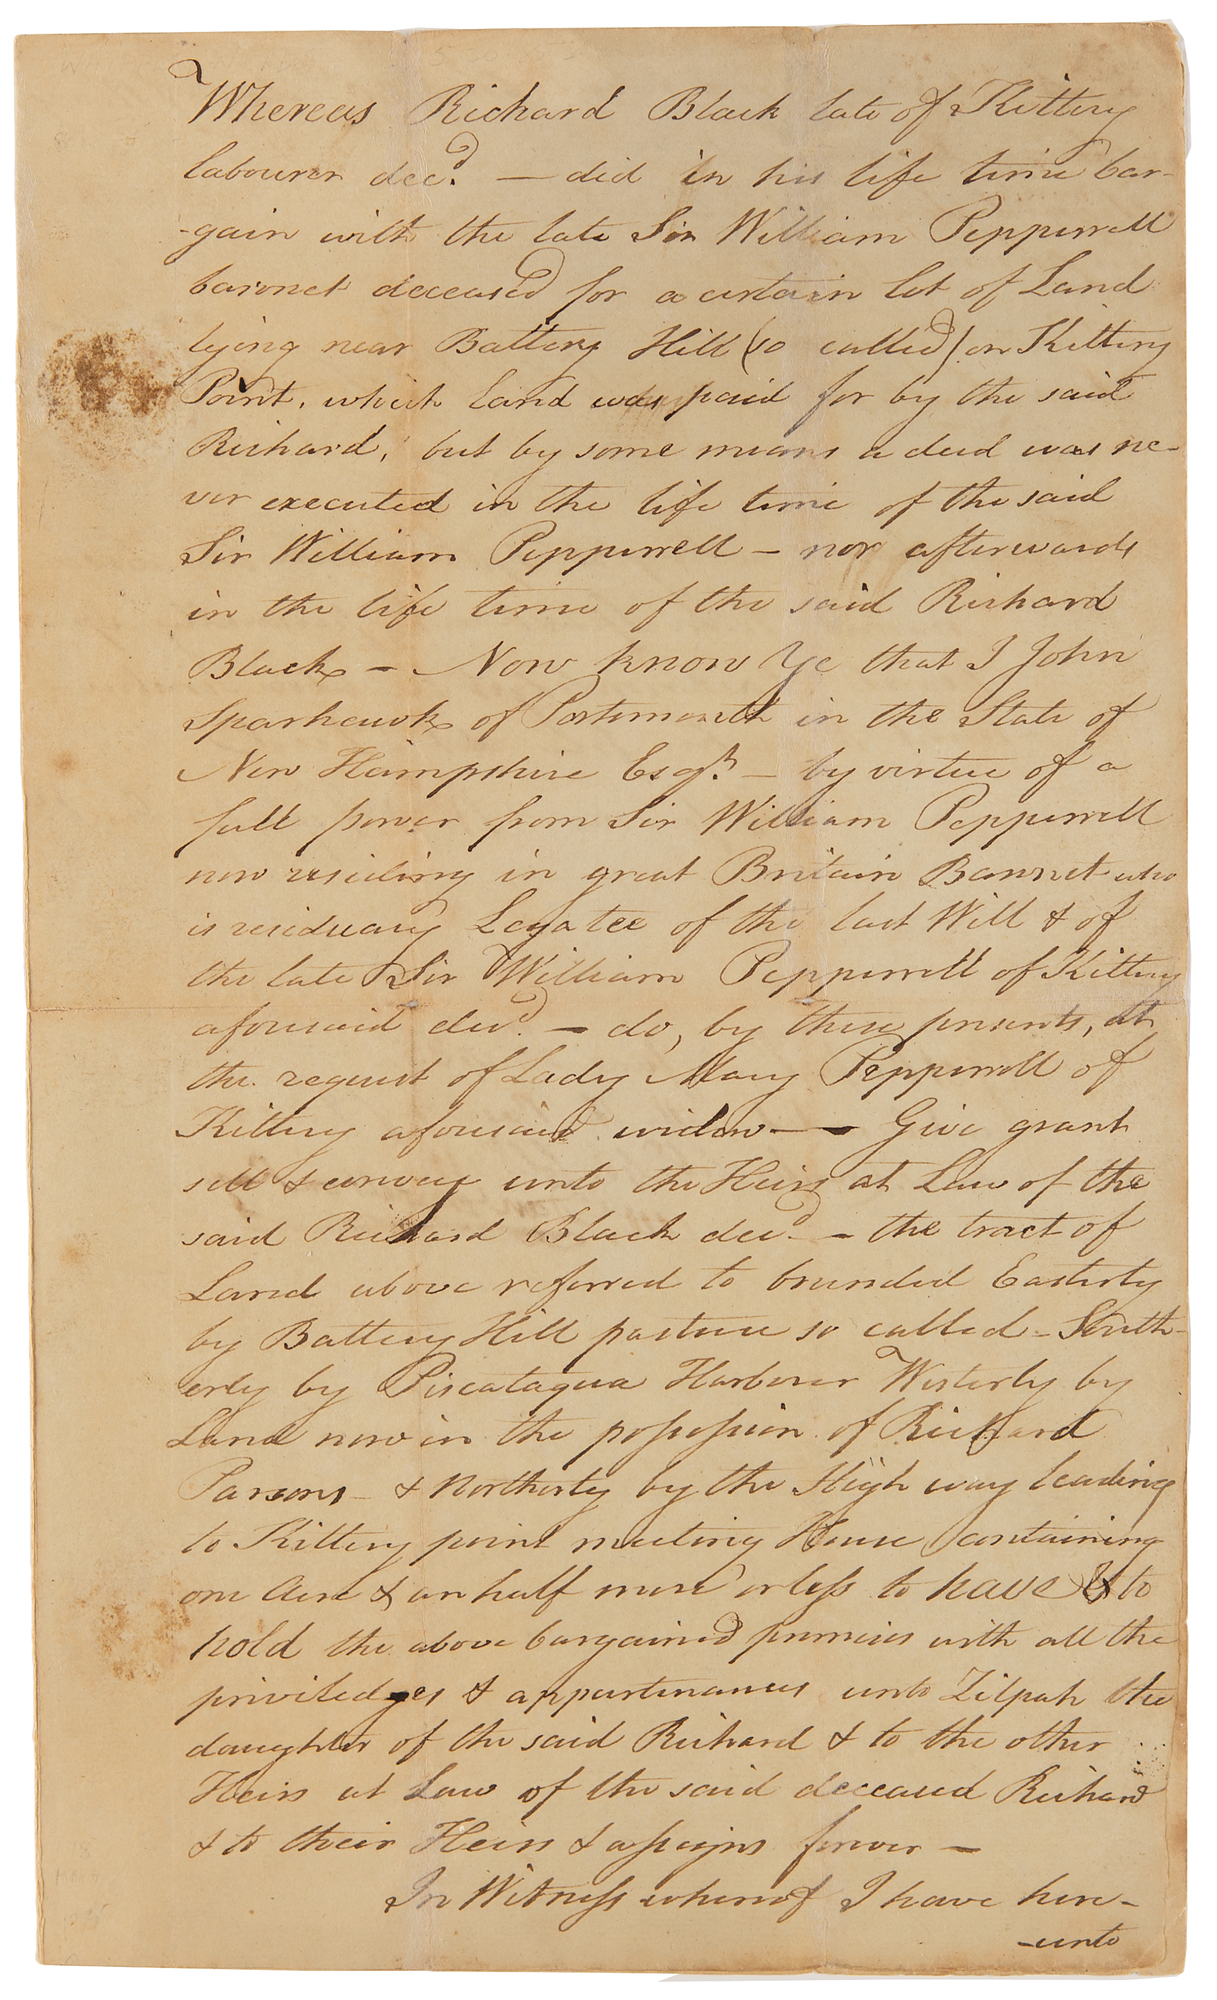 Whereas Richard Black late of Kittery
labourer decd. — did in his life time bar-
-gain with the late Sir William Pepperrell
baronet deceased for a certain lot of Land
lying near Battery Hill (so called) on Kittery
Point, which land was paid for by the said
Richard, but by some means a deed was ne-
ver executed in the life time of the said
Sir William Pepperrell — nor afterwards
in the life time of the said Richard
Black — Now know Ye that I John
Sparhawk of Portsmouth in the State of
New Hampshire Esqr. — by virtue of a
full power from Sir William Pepperrell
now residing in great Britain Baronet who
is residuary Legatee of the last Will & of
the late Sir William Pepperrell of Kittery
aforesaid decd. — do, by these presents, at
the request of Lady Mary Pepperrell of
Kittery aforesaid widow — Give grant
sell & convey unto the Heirs at Law of the
said Richard Black decd. — the tract of
Land above referred to bounded Easterly
by Battery Hill pasture so called - South-
erly by Piscataqua Harbour Westerly by
Land now in the possession of Richard
Parsons - & Northerly by the High way leading
to Kittery point meeting House containing
one Acre & an half more or less to have & to
hold the above bargained premises with all the
priviledges & appurtenances unto Zilpah the
daughter of the said Richard & to the other
Heirs at Law of the said deceased Richard
& to their Heirs & assigns forever —
In Witness whereof I have here-
-unto